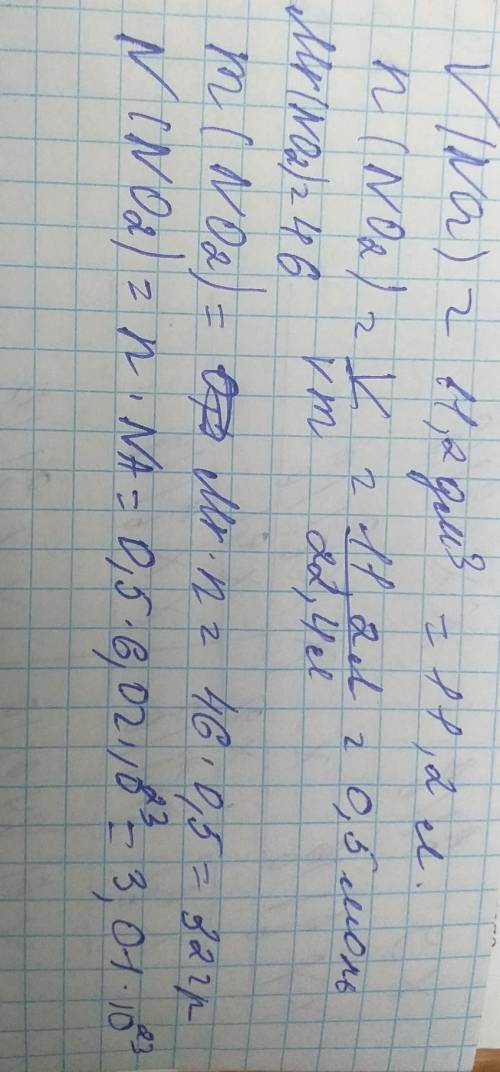 V(NO2) = 11,2 дм³ = 11,2 л.
n(NO2) = V/Vm = 11,2л/22,4л = 0,5 моль
Mr(NO2) = 46
m(NO2) = Mr·n = 46·0,5 = 22гр
N(NO2) = n·NA = 0,5·6,02·10²³ = 3,01·10²³